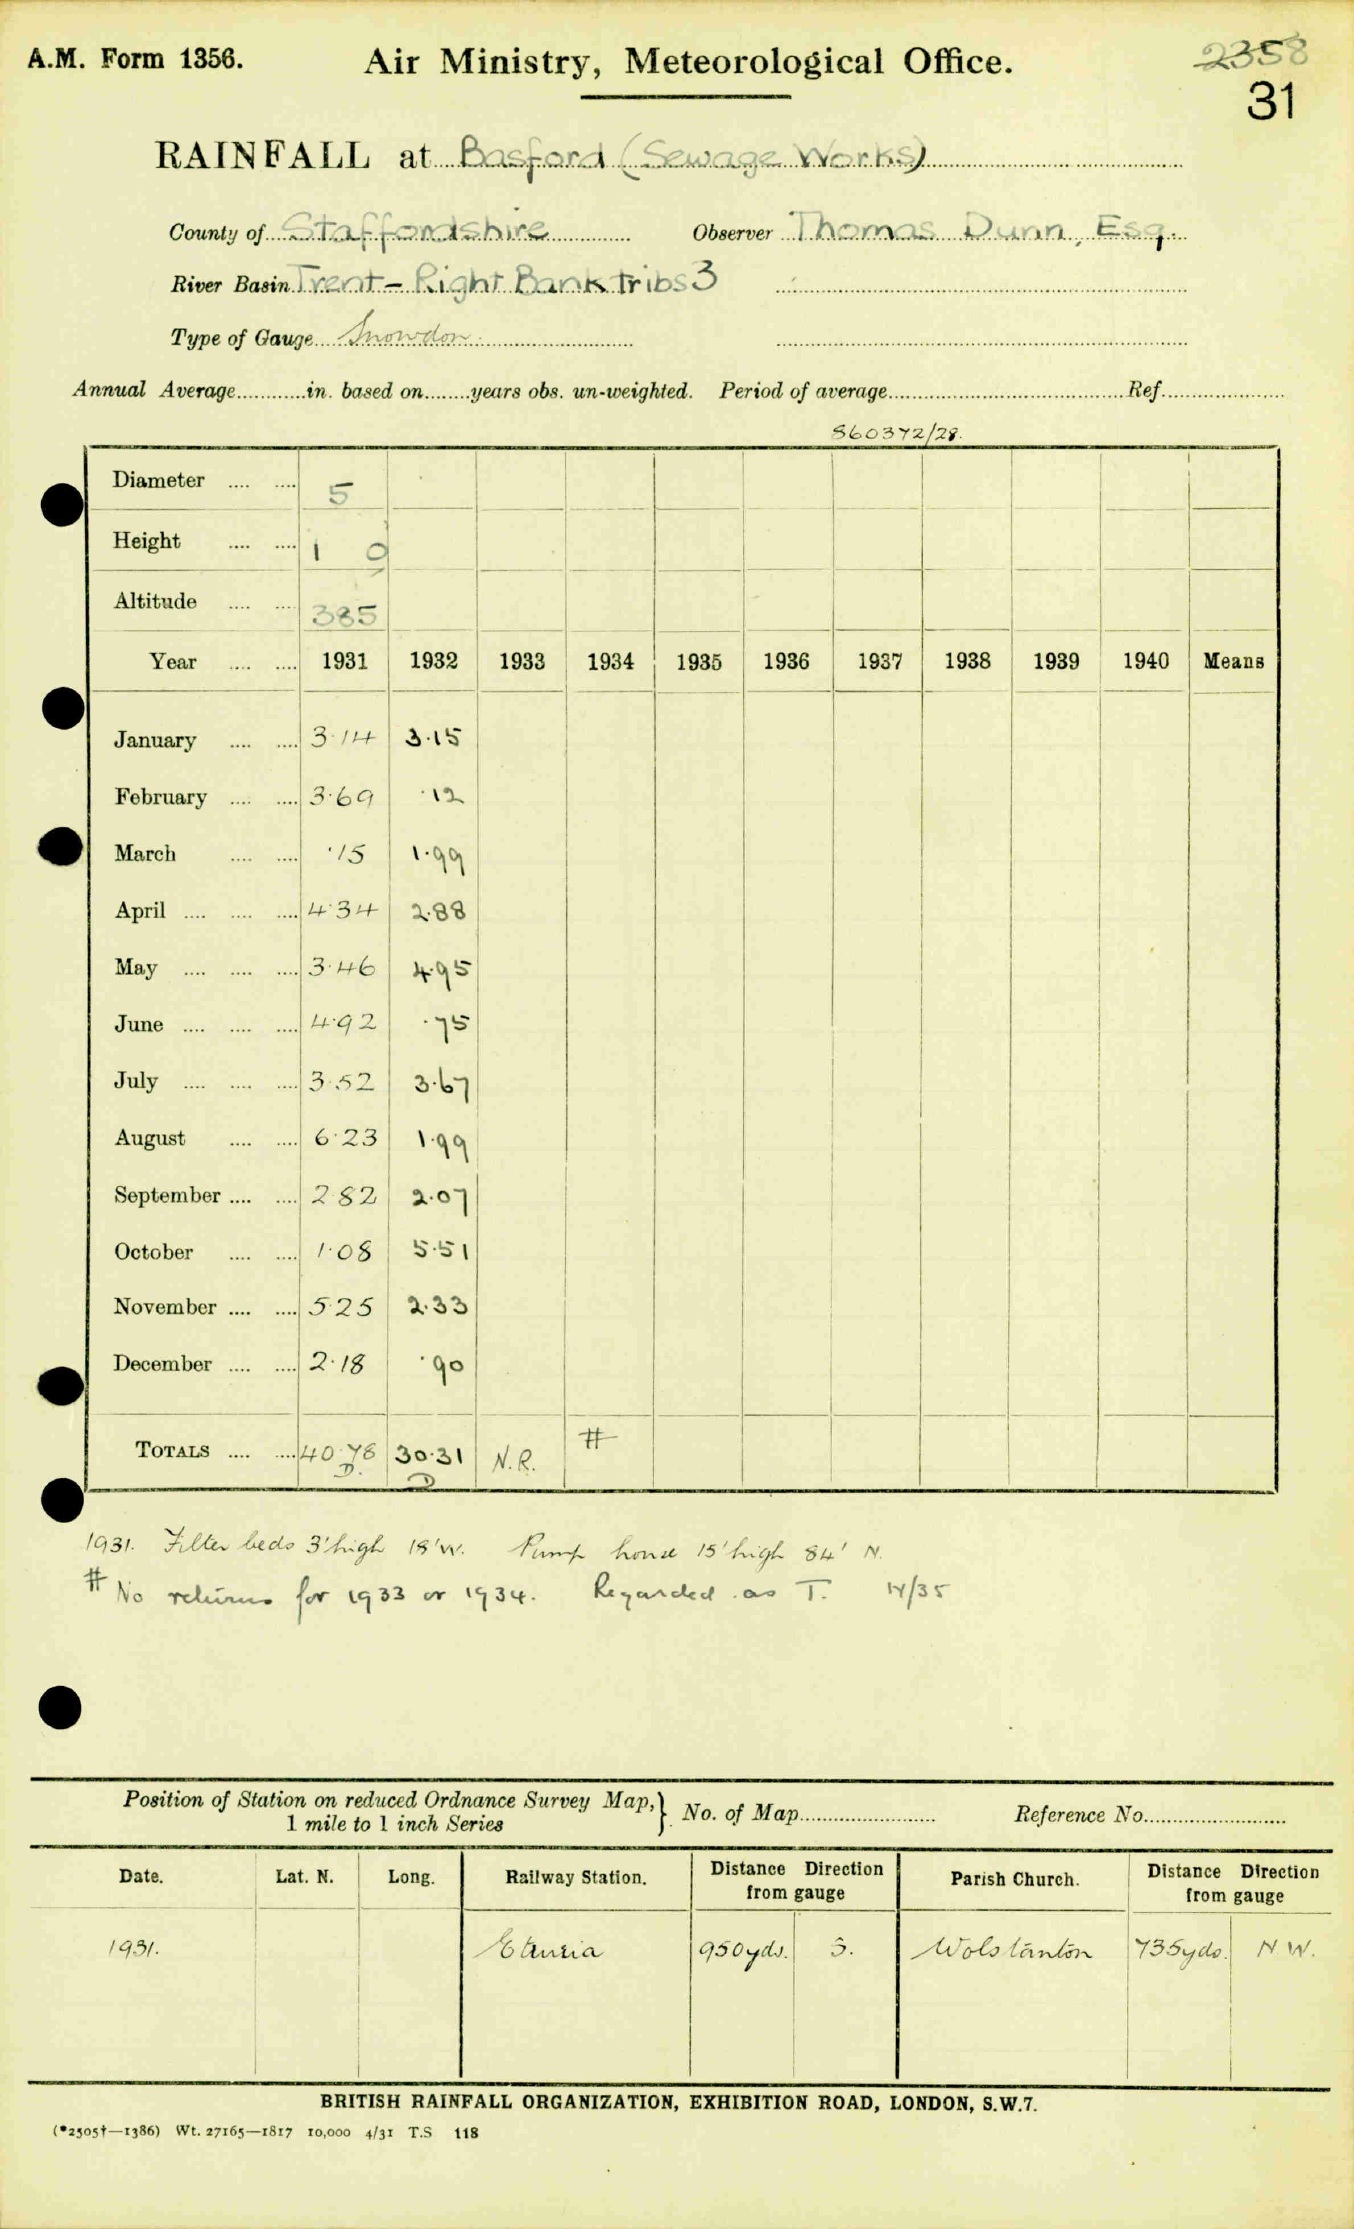 A.M. Form 1356. Air Ministry, Meteorological Office. 2358
31
RAINFALL at Basford (Sewage Works)
County of Staffordshire Observer Thomas Dunn, Esq.
River Basin Trent - Right Bank tribs 3
Type of Gauge Snowdon.
Annual Average............in. based on........years obs. un-weighted. Period of average........................................Ref.....................
860372/28.
Diameter .... .... 5
Height .... .... 1 0
Altitude .... .... 385
Year .... .... 1931 1932 1933 1934 1935 1936 1937 1938 1939 1940 Means
January .... .... 3.14 3.15
February .... .... 3.69 .12
March .... .... .15 1.99
April .... .... .... 4.34 2.88
May .... .... .... 3.46 4.95
June .... .... .... 4.92 .75
July .... .... .... 3.52 3.67
August .... .... 6.23 1.99
September .... .... 2.82 2.07
October .... .... 1.08 5.51
November .... .... 5.25 2.33
December .... .... 2.18 .90
TOTALS .... .... 40.78 30.31 N.R. #
D. D
1931. Filter beds 3' high 18' W. Pump house 15' high 84' N.
# No returns for 1933 or 1934. Regarded as T. 14/35
Position of Station on reduced Ordnance Survey Map, } No. of Map........................ Reference No.........................
1 mile to 1 inch Series
Date. Lat. N. Long. Railway Station. Distance Direction from gauge Parish Church. Distance Direction from gauge
1931. Etruria 950yds. S. Wolstanton 735yds. N W.
BRITISH RAINFALL ORGANIZATION, EXHIBITION ROAD, LONDON, S.W.7.
(*2505†—1386) Wt. 27165—1817 10,000 4/31 T.S 118